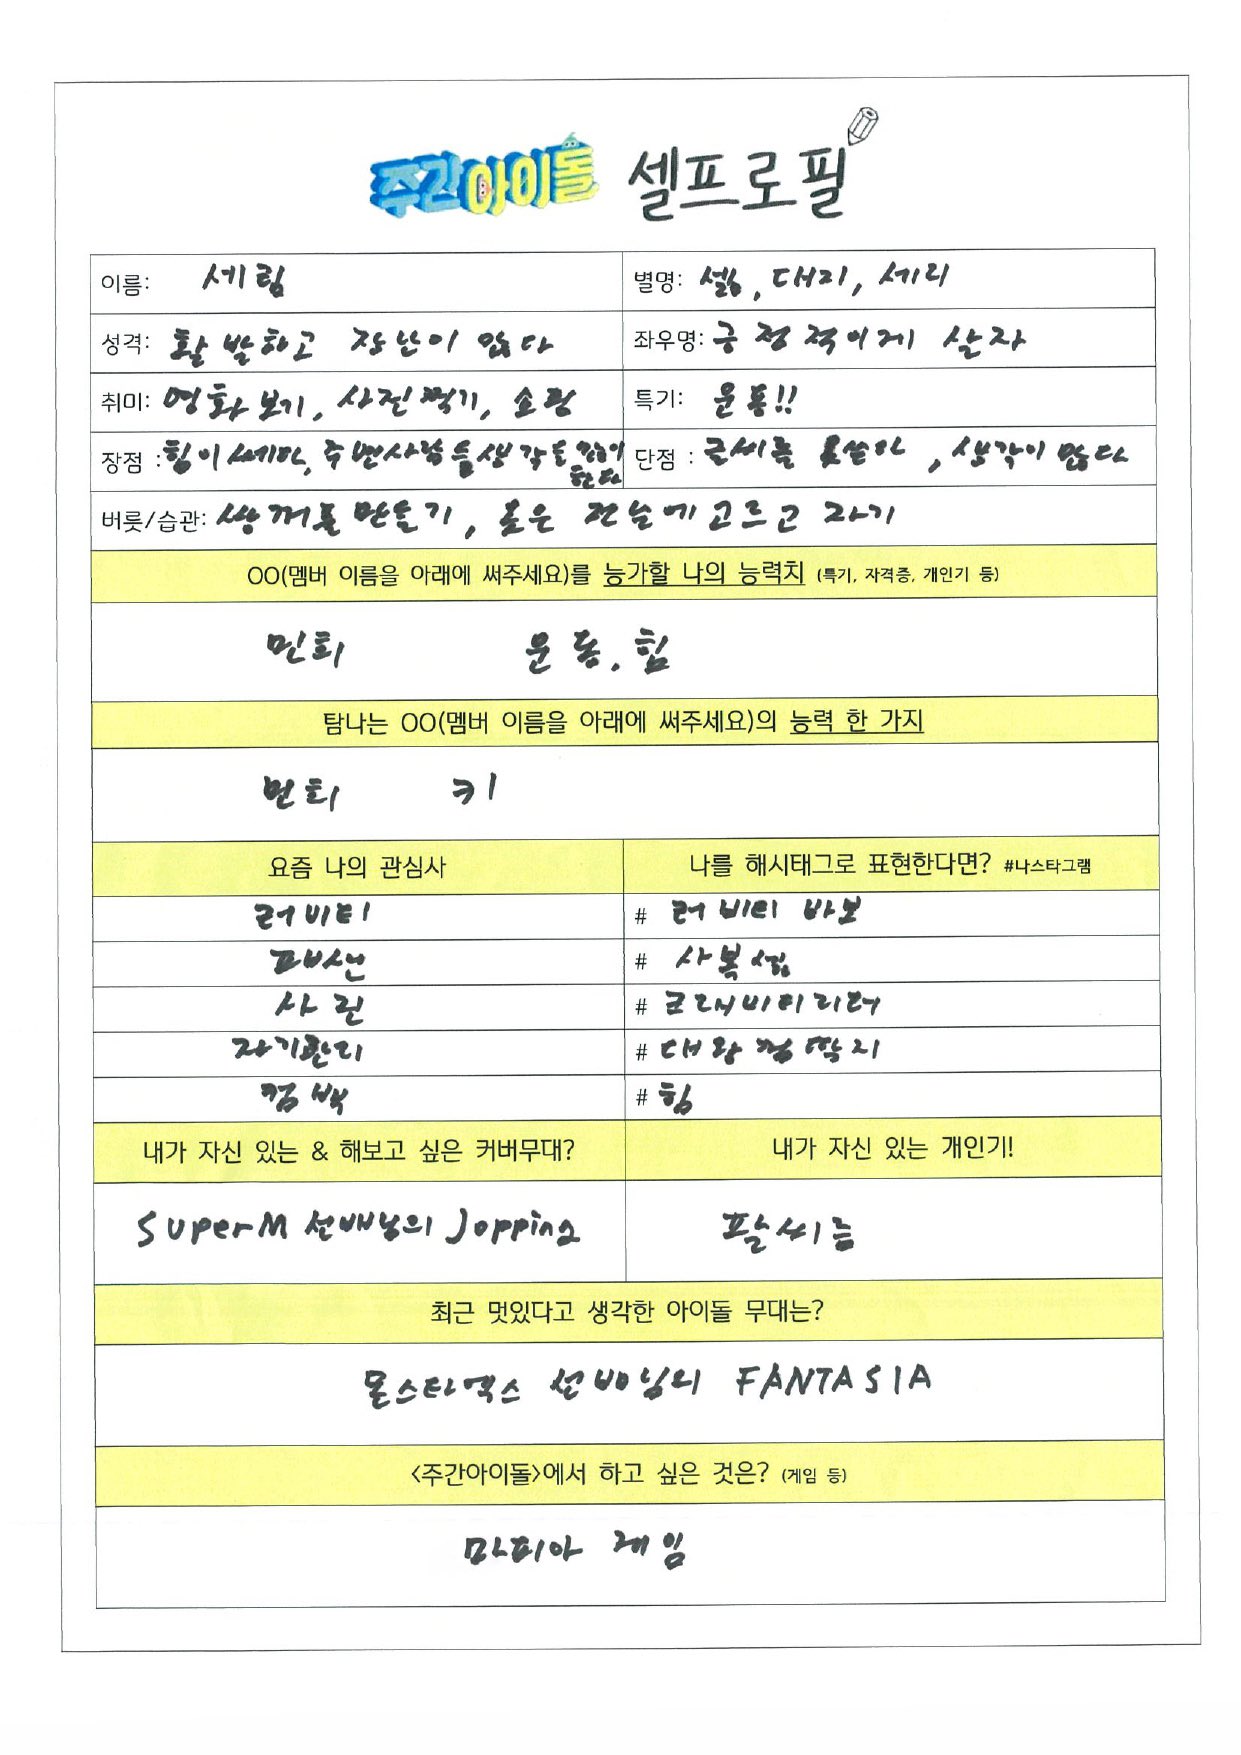 주간아이돌 셀프로필
이름: 세림
별명: 셂, 대리, 세리
성격: 활발하고 장난이 많다
좌우명: 긍정적이게 살자
취미: 영화보기, 사진찍기, 쇼핑
특기: 운동!!
장점 : 힘이 세다, 주변사람들 생각을 많이 한다
단점 : 글씨를 못쓴다, 생각이 많다
버릇/습관: 쌍꺼풀 만들기, 옷은 전날에 고르고 자기
OO(멤버 이름을 아래에 써주세요)를 능가할 나의 능력치 (특기, 자격증, 개인기 등)
민희 운동, 힘
탐나는 OO(멤버 이름을 아래에 써주세요)의 능력 한 가지
민희 키
요즘 나의 관심사
나를 해시태그로 표현한다면? #나스타그램
러비티
# 러비티 바보
패션
# 사복셂
사진
# 크래비티리더
자기관리
# 대왕코딱지
컴백
# 힘
내가 자신 있는 & 해보고 싶은 커버무대?
내가 자신 있는 개인기!
SuperM 선배님의 Jopping
팔씨름
최근 멋있다고 생각한 아이돌 무대는?
몬스타엑스 선배님의 FANTASIA
<주간아이돌>에서 하고 싶은 것은? (게임 등)
마피아 게임